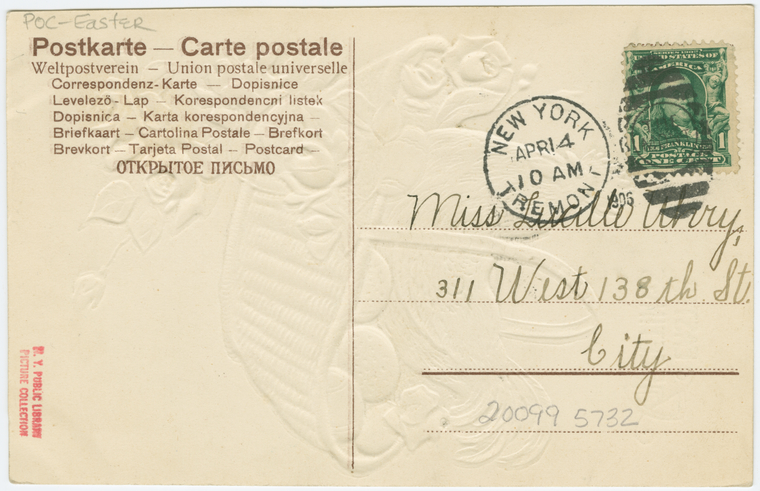 POC-Easter
Postkarte — Carte postale
Weltpostverein — Union postale universelle
Correspondenz-Karte — Dopisnice
Levelező-Lap — Korespondencni listek
Dopisnica — Karta korespondencyjna —
Briefkaart — Cartolina Postale — Brefkort
Brevkort — Tarjeta Postal — Postcard —
ОТКРЫТОЕ ПИСЬМО
NEW YORK
APR 14
10 AM
TREMONT
1906
SERIES 1902
UNITED STATES OF
AMERICA
1 FRANKLIN 1
POSTAGE
ONE CENT
Miss Lucille
311 West 138th St.
City
20099 5732
N. Y. PUBLIC LIBRARY
PICTURE COLLECTION